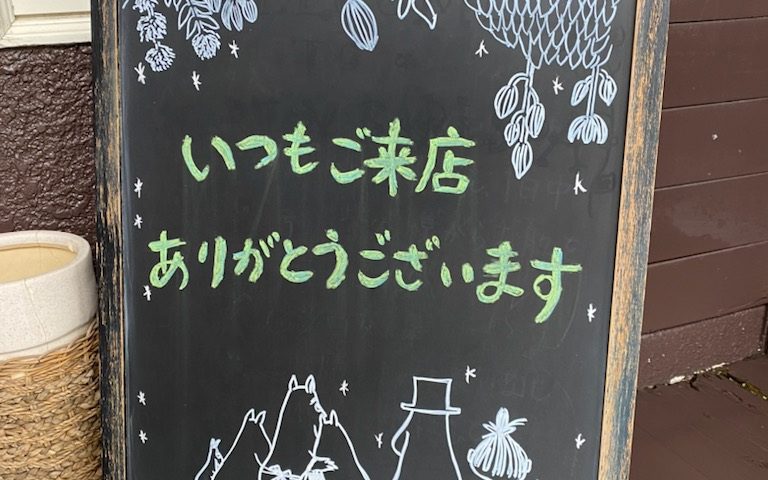 いつもご来店
ありがとうございます